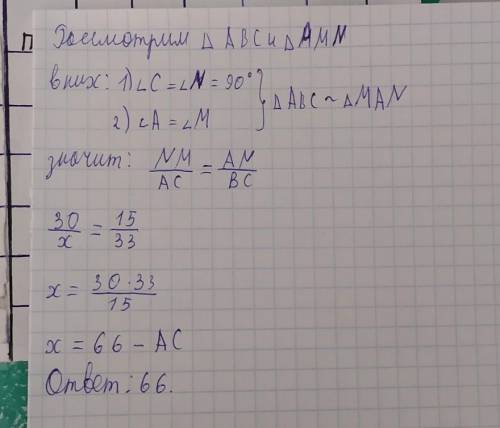 П
Рассмотрим △ ABC и △ AMN
в них: 1) ∠C = ∠N = 90°
2) ∠A = ∠M } △ABC ~ △MAN
значит: NM/AC = AN/BC
30/x = 15/33
x = 30·33/15
x = 66 – AC
Ответ: 66.